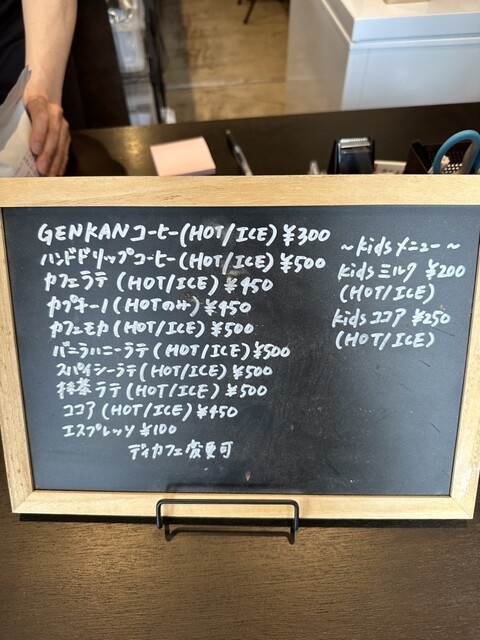 GENKANコーヒー(HOT/ICE) ¥300
ハンドドリップコーヒー(HOT/ICE) ¥500
カフェラテ (HOT/ICE) ¥450
カプチーノ (HOTのみ) ¥450
カフェモカ (HOT/ICE) ¥500
バニラハニーラテ (HOT/ICE) ¥500
スパイシーラテ (HOT/ICE) ¥500
抹茶ラテ (HOT/ICE) ¥500
ココア (HOT/ICE) ¥450
エスプレッソ ¥100
ディカフェ変更可
〜kidsメニュー〜
kidsミルク ¥200
(HOT/ICE)
kidsココア ¥250
(HOT/ICE)